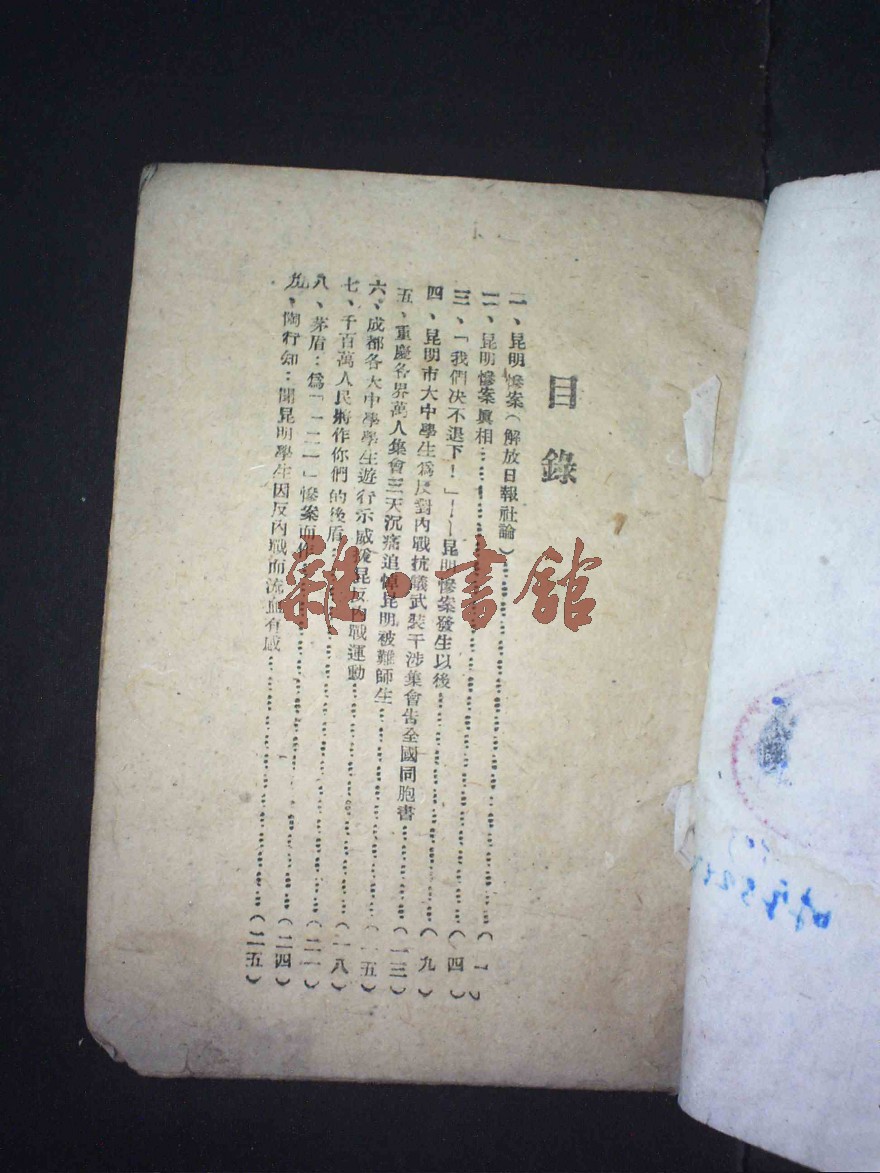 目錄
一、昆明慘案（解放日報社論）……（1）
二、昆明慘案眞相……（四）
三、「我們決不退下！」——昆明慘案發生以後……（九）
四、昆明市大中學生爲反對內戰抗議武裝干涉集會告全國同胞書……（一三）
五、重慶各界萬人集會三天沉痛追悼昆明被難師生……（一五）
六、成都各大中學學生遊行示威援昆反內戰運動……（一八）
七、千百萬人民將作你們的後盾……（二一）
八、茅盾：爲「一二一」慘案而作……（二四）
九、陶行知：聞昆明學生因反內戰而流血有感……（二五）
雜·書館